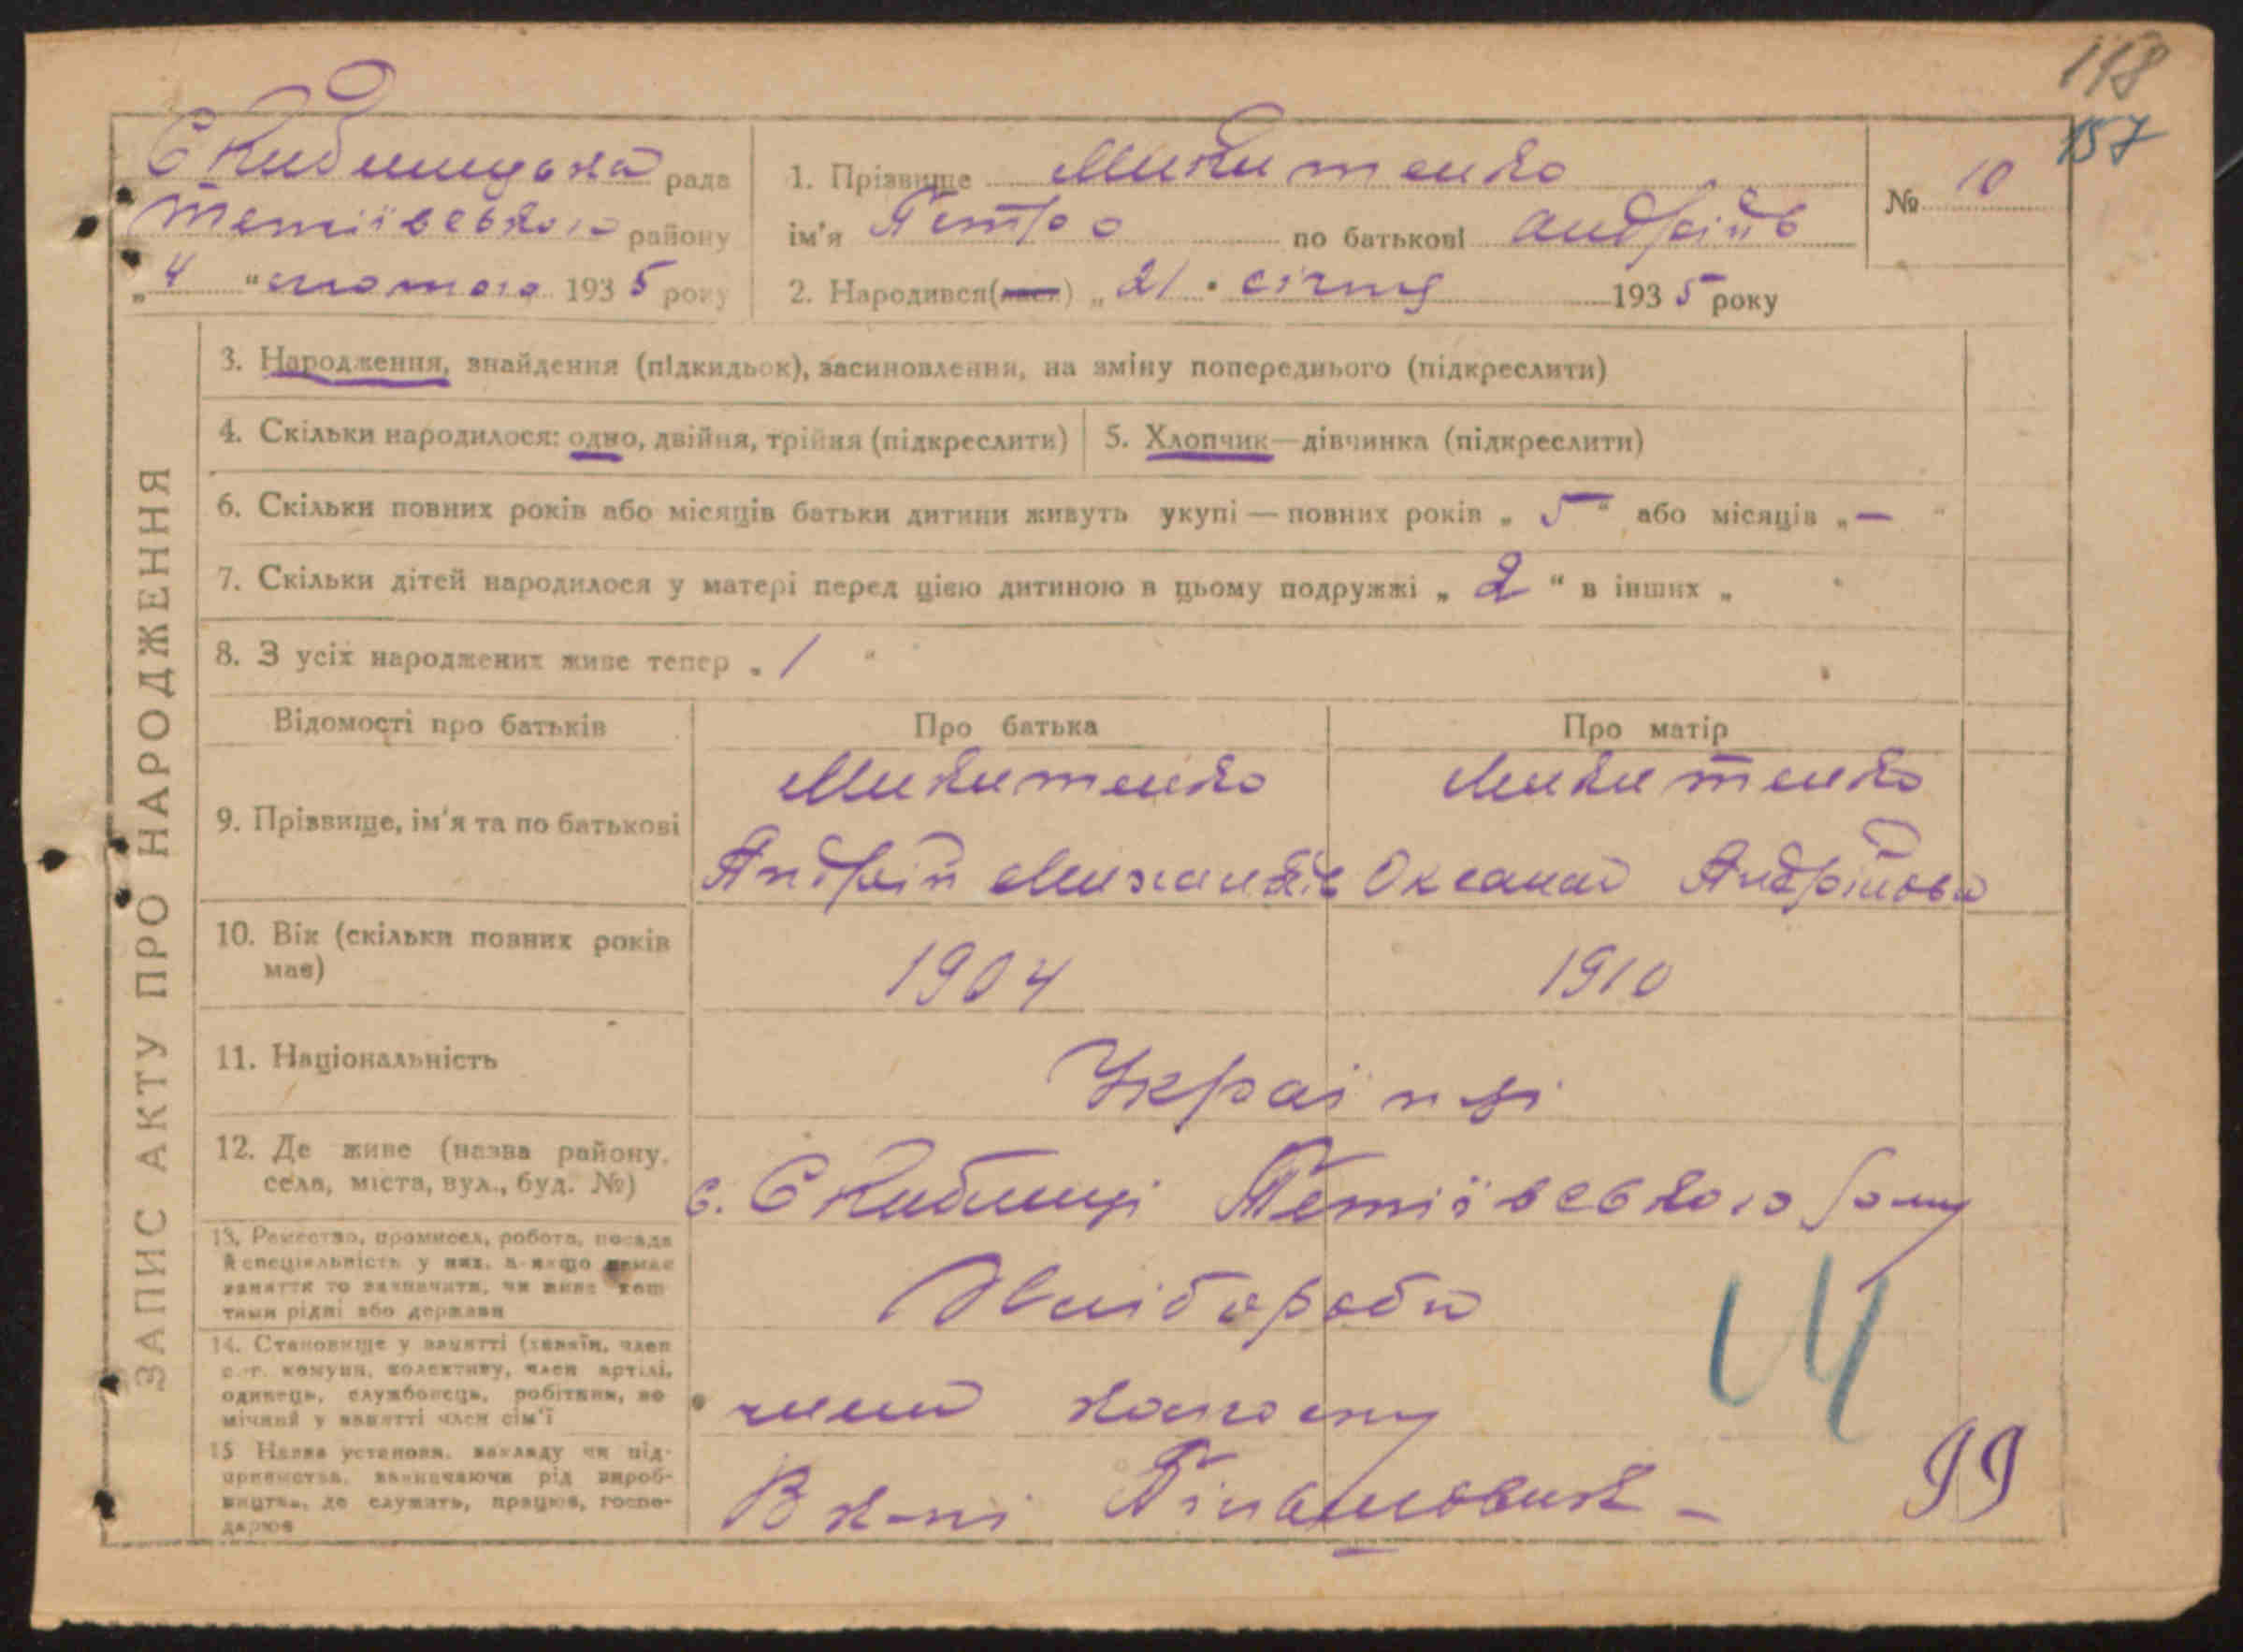 118
157
Скибинецька рада
Тетіївського району
„4“ лютого 1935 року
1. Прізвище Микитенко
ім'я Петро по батькові Андріїв
2. Народився(лася) „21“ січня 1935 року
№ 10
ЗАПИС АКТУ ПРО НАРОДЖЕННЯ
3. Народження, знайдення (підкидьок), засиновлення, на зміну попереднього (підкреслити)
4. Скільки народилося: одно, двійня, трійня (підкреслити)
5. Хлопчик—дівчинка (підкреслити)
6. Скільки повних років або місяців батьки дитини живуть укупі — повних років „5“ або місяців „—“
7. Скільки дітей народилося у матері перед цією дитиною в цьому подружжі „2“ в інших „
8. З усіх народжених живе тепер „1“
Відомості про батьків
Про батька
Про матір
9. Прізвище, ім'я та по батькові
Микитенко
Андрій
Микитенко
Оксана Андрійова
10. Вік (скільки повних років
має)
1904
1910
11. Національність
Українці
12. Де живе (назва району,
села, міста, вул., буд. №)
с. Скибинці Тетіївського рону
13. Ремество, промисел, робота, посада
й спеціяльність у них, а якщо немає
заняття то зазначити, чи живе кош
тами рідні або держави
Хлібороби
14. Становище у занятті (хазяїн, член
с.-г. комуни, колективу, член артілі,
одинець, службовець, робітник, по
мічний у занятті член сім'ї
члени колгоспу
15 Назва установи, закладу чи під-
приємства, зазначаючи рід вироб-
ництва, де служить, працює, госпо-
дарює
В к-пі
99